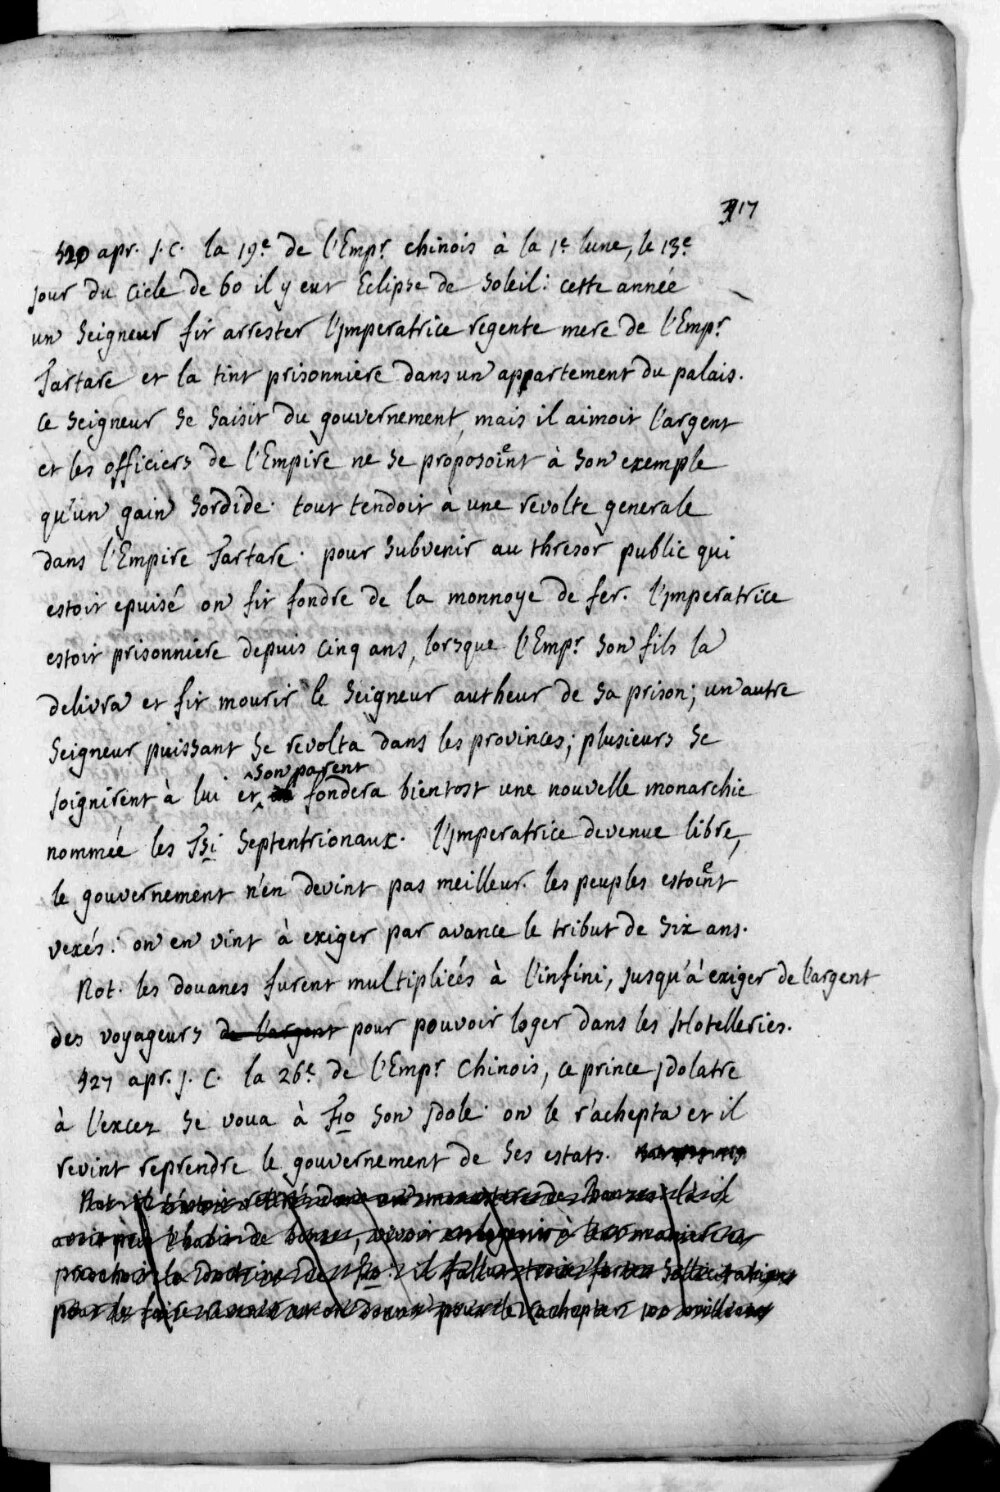 317
520 apr. J. C. la 19e de l'Empr chinois à la 1e lune, le 13e
jour du cicle de 60 il y eut Eclipse de soleil: cette année
un seigneur fit arrester l'jmperatrice regente mere de l'Empr
Tartare et la tint prisonniere dans un appartement du palais.
ce seigneur se saisit du gouvernement, mais il aimoit l'argent
et les officiers de l'Empire ne se proposoient à son exemple
qu'un gain sordide. tout tendoit à une revolte generale
dans l'Empire Tartare. pour subvenir au thresor public qui
estoit epuisé on fit fondre de la monnoye de fer. l'jmperatrice
estoit prisonniere depuis cinq ans, lorsque l'Empr son fils la
delivra et fit mourir le seigneur autheur de sa prison; un autre
seigneur puissant se revolta dans les provinces; plusieurs se
son parent
joignirent à lui et fondera bientost une nouvelle monarchie
nommée les Tsi septentrionaux. l'jmperatrice devenue libre,
le gouvernement n'en devint pas meilleur. les peuples estoient
vexés: on en vint à exiger par avance le tribut de six ans.
Not. les douanes furent multipliées à l'infini, jusqu'à exiger de l'argent
des voyageurs de l'argent pour pouvoir loger dans les Hotelleries.
527 apr. J. C. la 26e de l'Empr Chinois, ce prince jdolatre
à l'excez se voua à Fo son jdole. on le r'achepta et il
revint reprendre le gouvernement de ses estats.
Not. il s'estoit retiré dans un monastere de bonzes là il
avoit pris l'habit de bonze, vivoit à leur maniere et
preschoit la doctrine de fo: il fallut trois fortes sollicitations
pour le faire et on donna pour le rachepter 100 millions